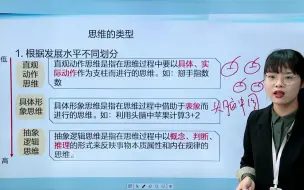 思维的类型
1. 根据发展水平不同划分
低
直观
动作
思维
直观动作思维是指在思维过程中要以具体、实
际动作作为支柱而进行的思维。如：掰手指数
数
具体形
象思维
具体形象思维是指在思维过程中借助于表象而
进行的思维。如：利用头脑中苹果计算3+2
头脑中
抽象
逻辑
思维
抽象逻辑思维是指在思维过程中以概念、判断、
推理的形式来反映事物本质属性和内在规律的
思维。
高